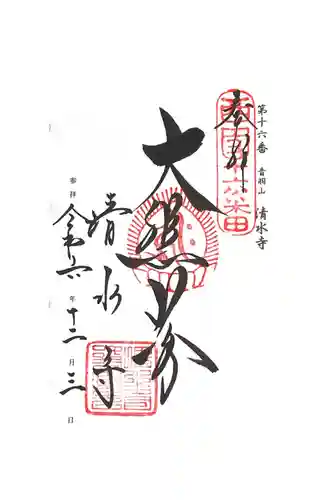 第十六番 音羽山 清水寺
奉拝
大悲閣
清水寺
参拝 令和六年十二月三日